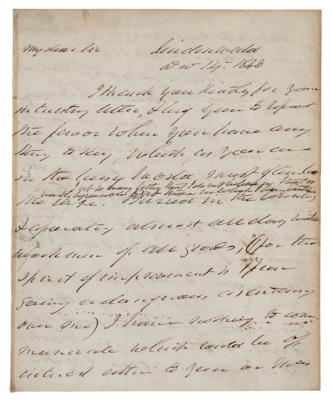 My dear Sir Lindenwald
Dec 14th. 1843
I thank you kindly for your
interesting letter, & beg you to repeat
the favor when you have any
thing to say, which, as you are
in the busy world, must often be
the case. in the country
& operating almost all day with
workmen of all grades, (for the
spirit of improvement is
gaining a dangerous ascendancy
over me) I have nothing to com
municate which could be of
interest either to you or